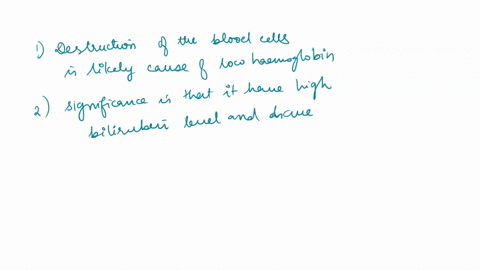 1) Destruction of the blood cells
is likely cause of low haemoglobin
2) significance is that it have high
bilirubin level and